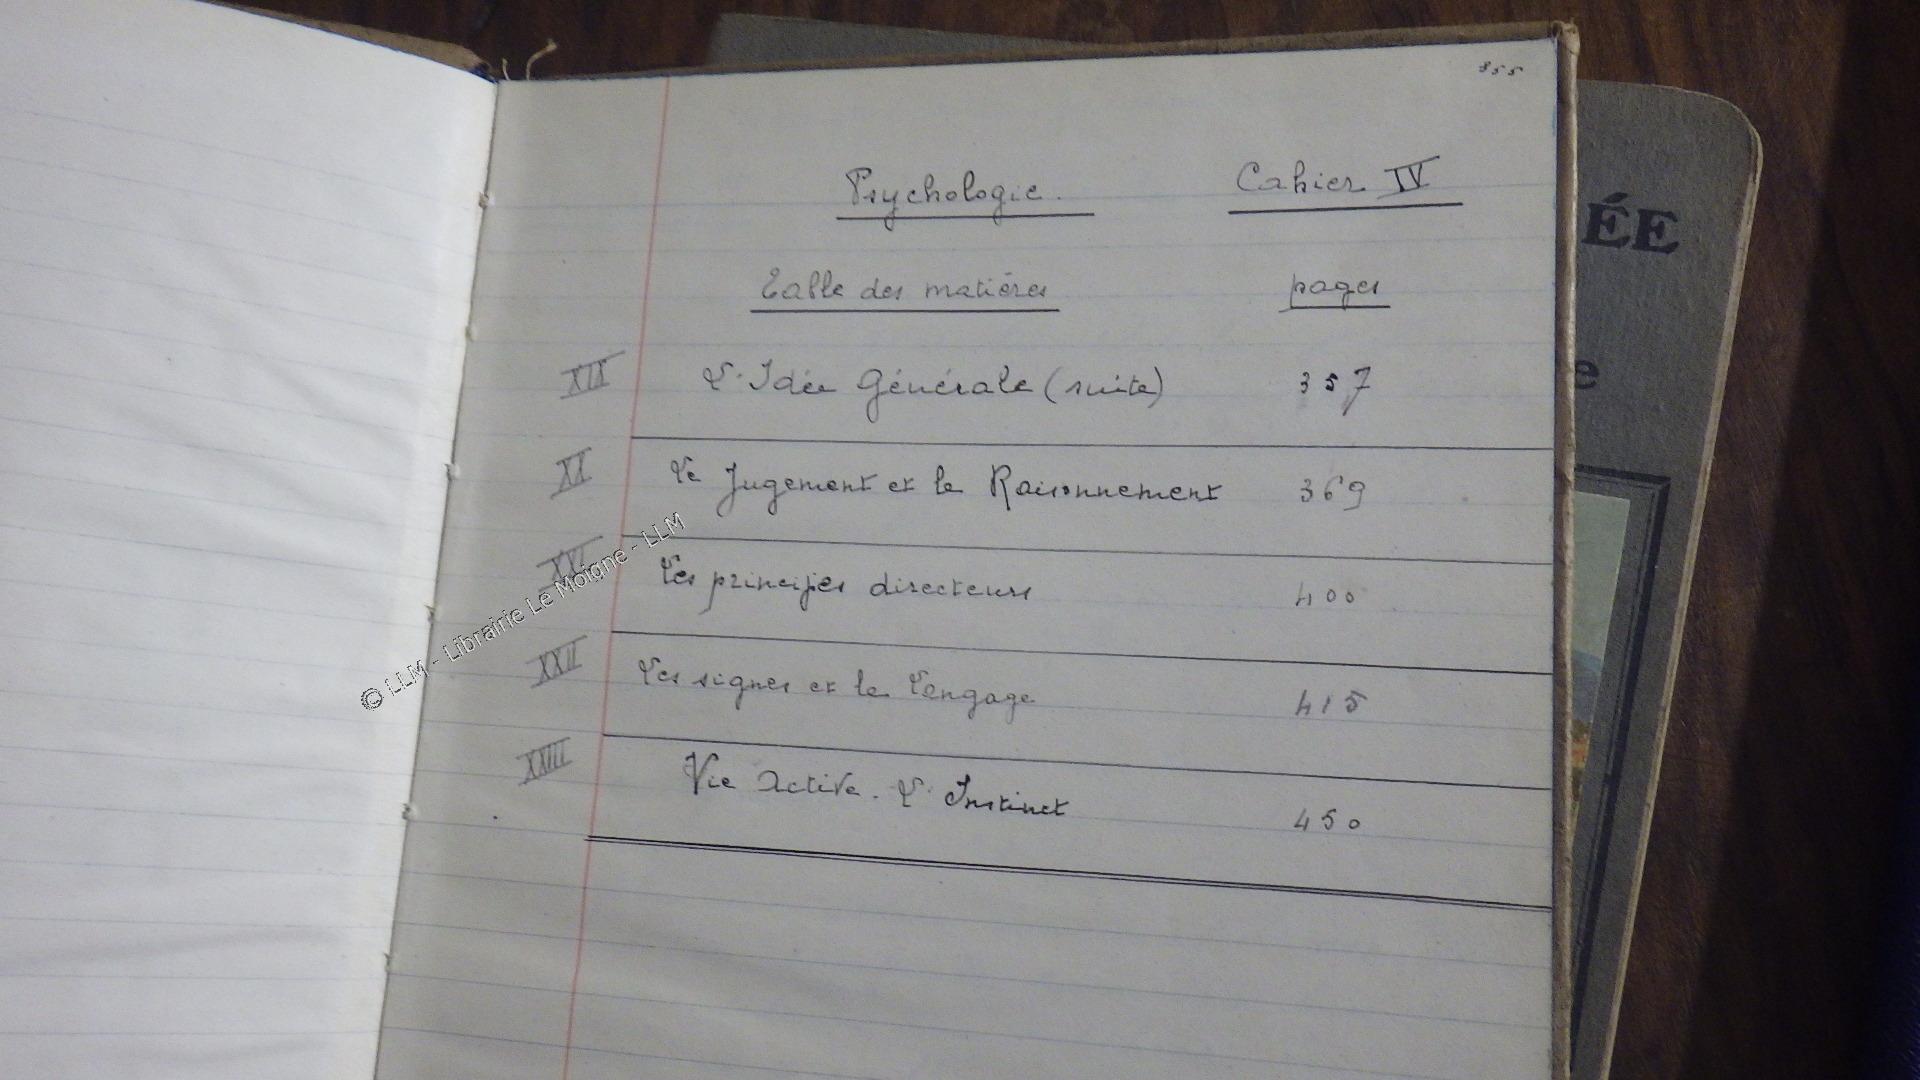 355
Psychologie. Cahier IV
Table des matières pages
XIX L'Idée Générale (suite) 357
XX Le Jugement et le Raisonnement 369
XXI Les principes directeurs 400
XXII Les signes et le Langage 415
XXIII Vie Active. L'Instinct 450
© LLM - Librairie Le Moigne - LLM
ÉE
e